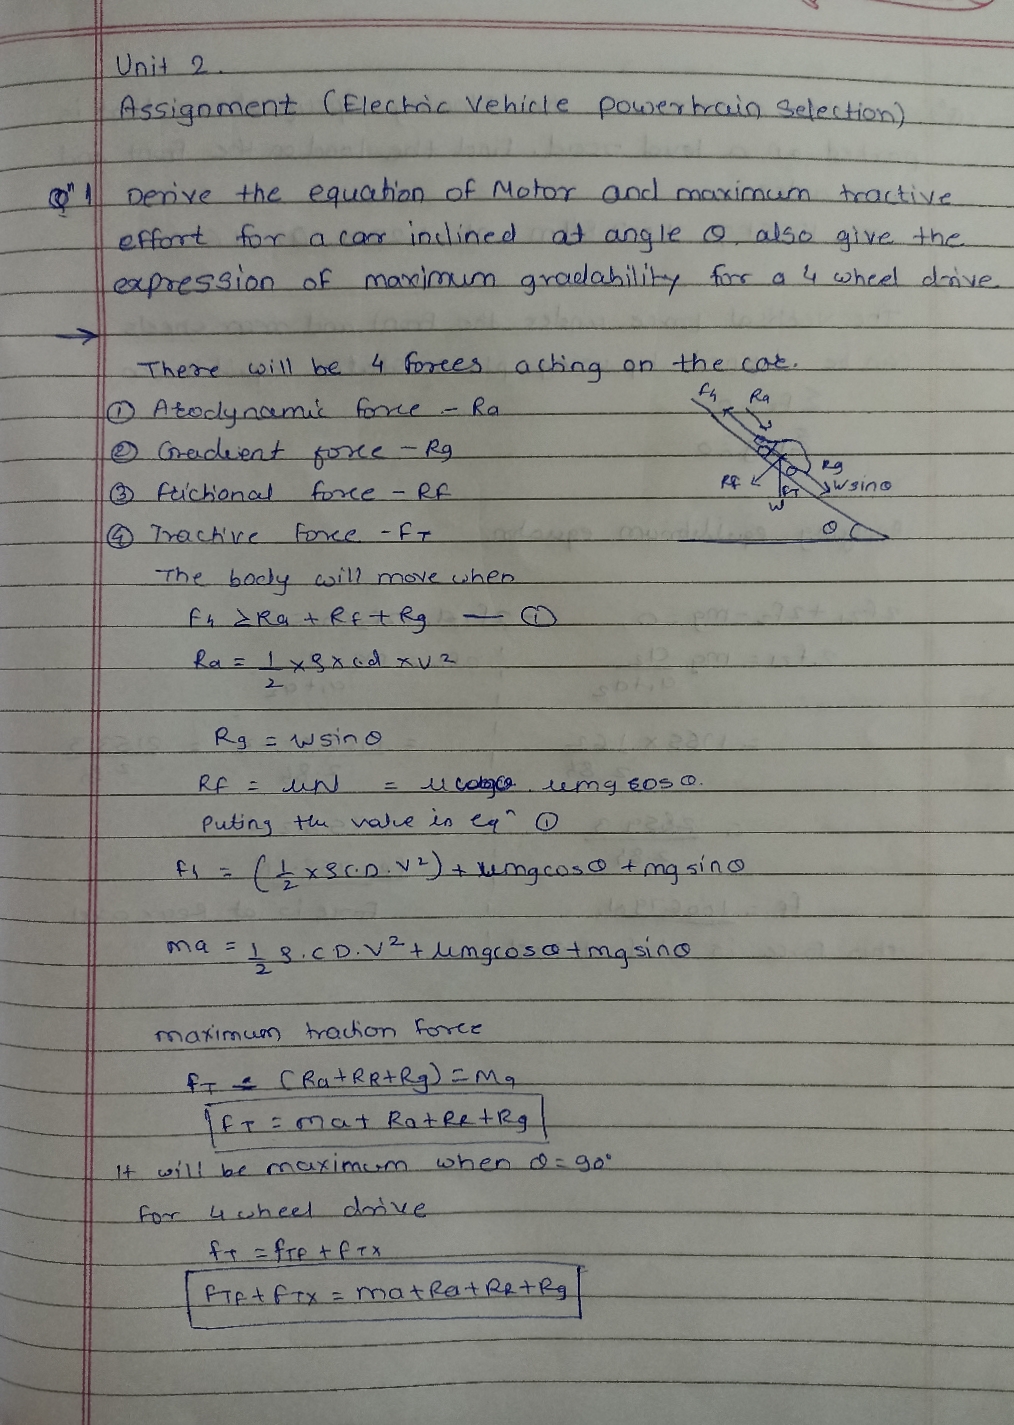 Unit 2.
Assignment (Electric Vehicle powertrain selection)
Qⁿ 1 Derive the equation of Motor and maximum tractive
effort for a car inclined at angle θ, also give the
expression of maximum gradability for a 4 wheel drive
→
There will be 4 forces acting on the car.
① Aerodynamic force - Ra
② Gradient force - Rg
③ frictional force - Rf
④ Tractive Force - FT
Ft Ra
Rf Rg
W FT Wsinθ
θ
The body will move when
Ft ≥ Ra + Rf + Rg — ①
Ra = 1/2 × ρ × cd × V²
Rg = Wsinθ
Rf = μN = μmg cosθ.
Puting the value in eqⁿ ①
Ft = (1/2 × ρ C.D. V²) + μmgcosθ + mg sinθ
ma = 1/2 ρ. C D. V² + μmgcosθ + mg sinθ
maximum traction force
FT = (Ra + RR + Rg) = Ma
FT = ma + Ra + RR + Rg
It will be maximum when θ = 90°
For 4 wheel drive
FT = FTF + FTX
FTF + FTX = ma + Ra + RR + Rg